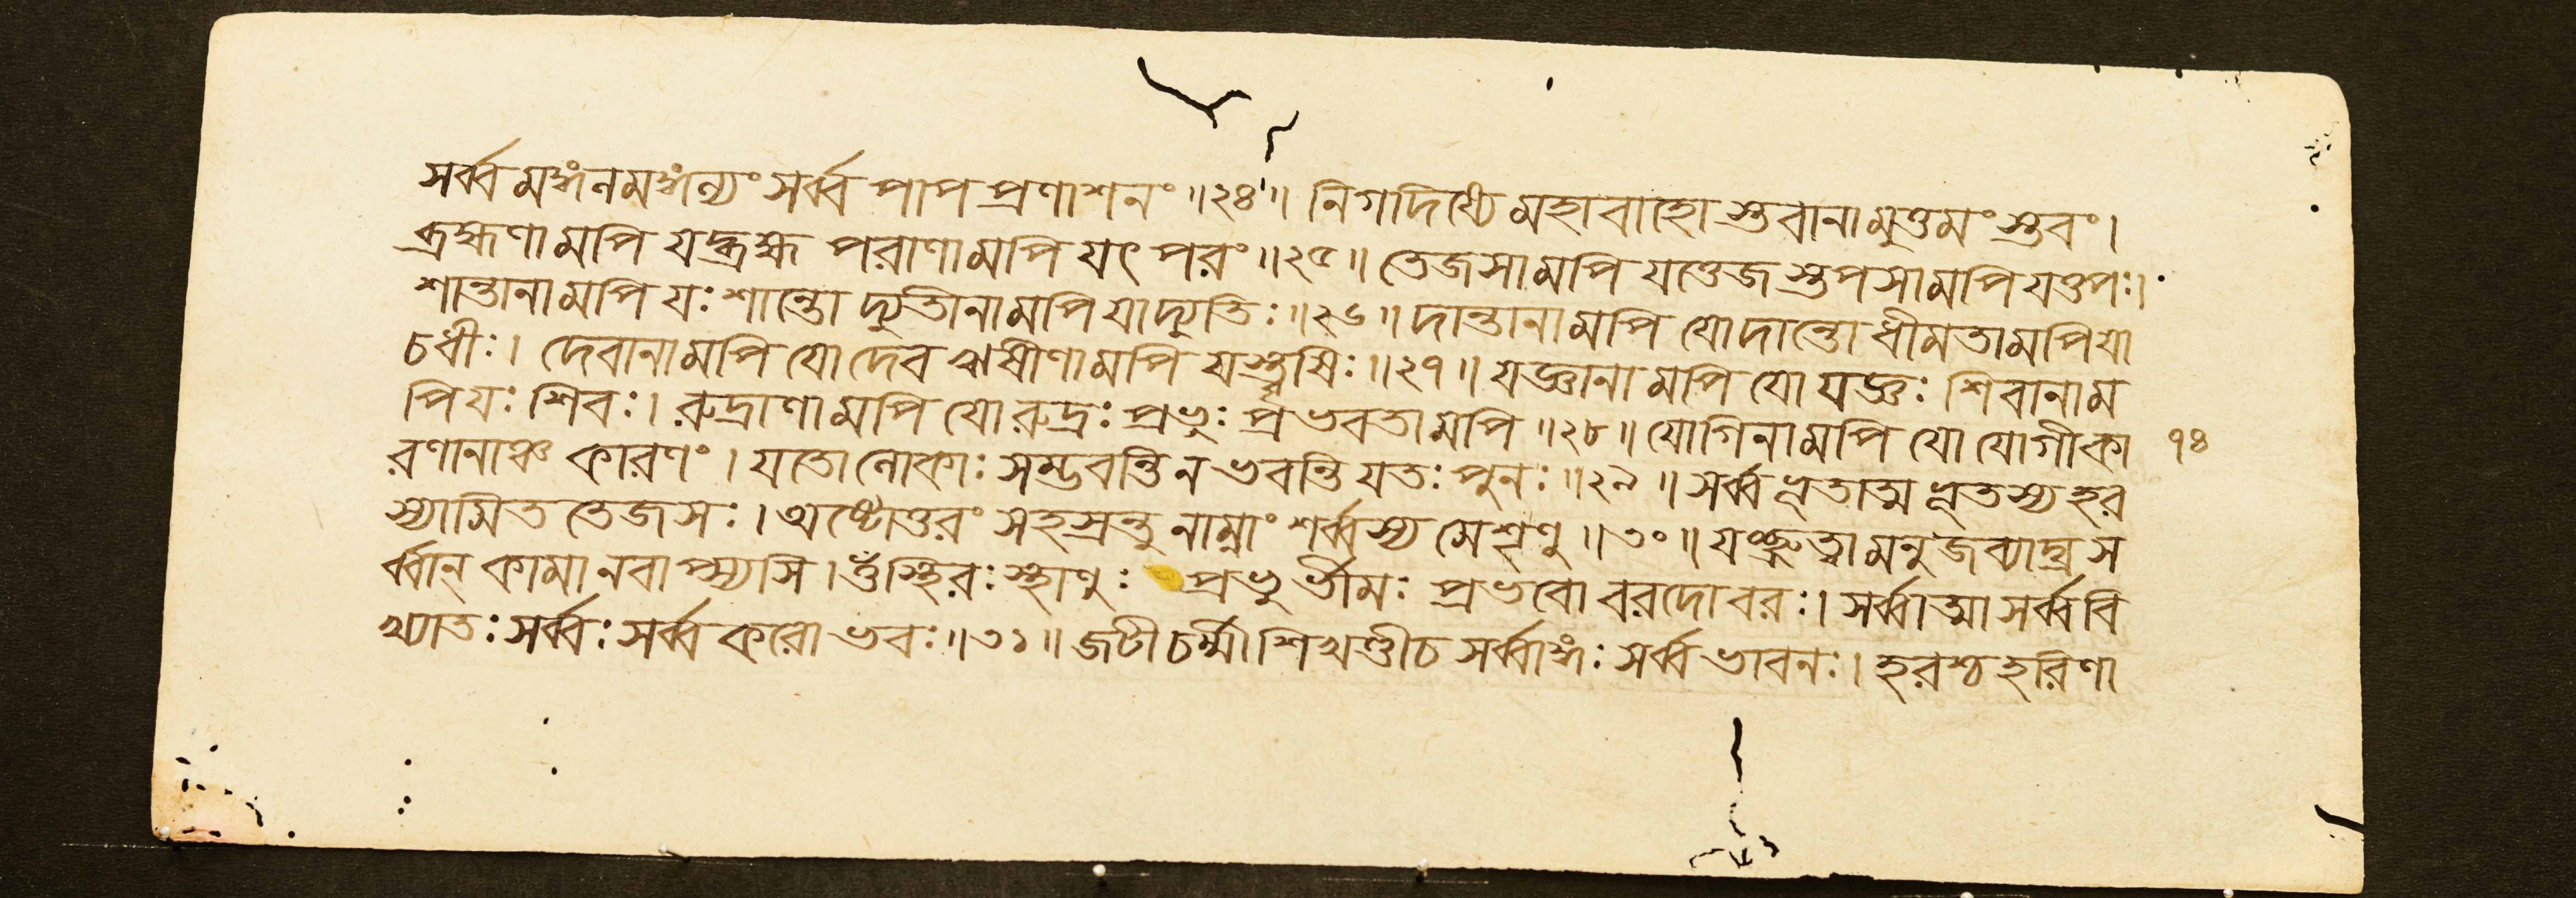 সর্ব্বমঙ্গলমঙ্গল্যং সর্ব্বপাপপ্রণাশনং ॥২৪॥ নিগদিষ্যে মহাবাহো স্তবানামুত্তমং স্তবং ।
ব্রহ্মণামপি যদ্ব্রহ্ম পরাণামপি যৎ পরং ॥২৫॥ তেজসামপি যত্তেজস্তপসামপি যত্তপঃ ।
শান্তানামপি যঃ শান্তো দ্যুতীনামপি যা দ্যুতিঃ ॥২৬॥ দান্তানামপি যো দান্তো ধীমতামপি যা
চ ধীঃ । দেবানামপি যো দেব ঋষীণামপি যস্ত্বৃষিঃ ॥২৭॥ যজ্ঞানামপি যো যজ্ঞঃ শিবানাম
পি যঃ শিবঃ । রুদ্রাণামপি যো রুদ্রঃ প্রভুঃ প্রভবতামপি ॥২৮॥ যোগিনামপি যো যোগী কা ১৪
রণানাঞ্চ কারণং । যতো লোকাঃ সম্ভবন্তি ন ভবন্তি যতঃ পুনঃ ॥২৯॥ সর্ব্বভূতাত্মভূতস্য হর
স্যামিততেজসঃ । অষ্টোত্তরং সহস্রন্তু নাম্নাং শর্ব্বস্য মে শৃণু ॥৩০॥ যৎশ্রুত্বা মনুজব্যাঘ্র স
র্ব্বান্ কামানবাপ্স্যসি । ওঁ স্থিরঃ স্থাণুঃ প্রভুর্ভীমঃ প্রভবো বরদো বরঃ । সর্ব্বাত্মা সর্ব্ববি
খ্যাতঃ সর্ব্বঃ সর্ব্বকরো ভবঃ ॥৩১॥ জটী চর্ম্মী শিখণ্ডী চ সর্ব্বাঙ্গঃ সর্ব্বভাবনঃ । হরশ্চ হরিণা